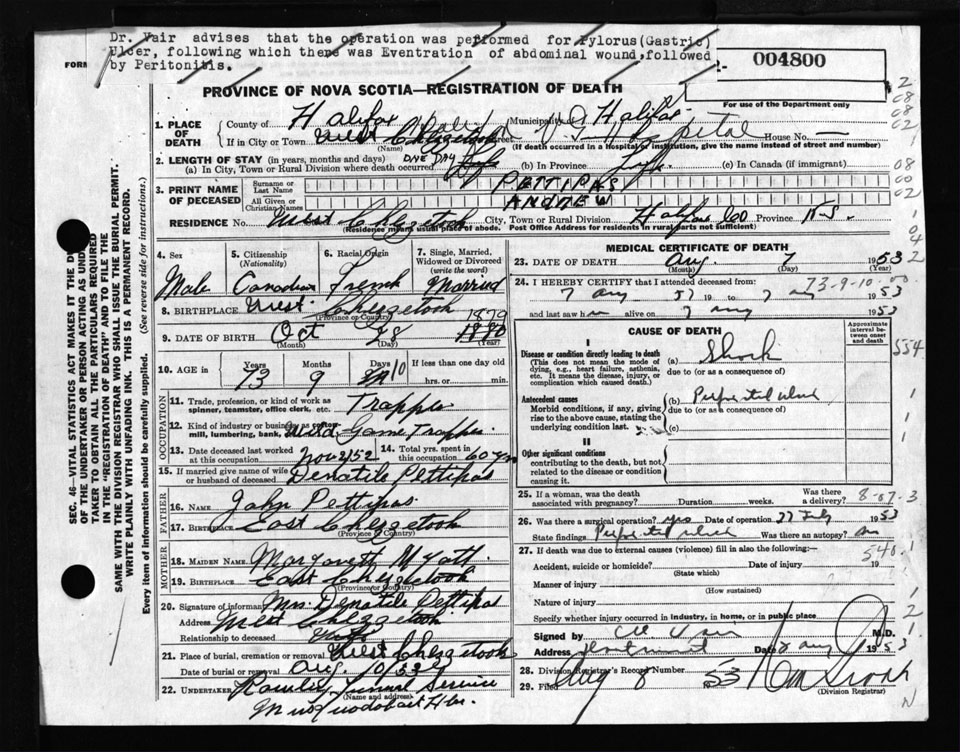 Dr. Vair advises that the operation was performed for Pylorus(Gastric)
Ulcer, following which there was Eventration of abdominal wound,followed
by Peritonitis.
FORM
004800
For use of the Department only
PROVINCE OF NOVA SCOTIA—REGISTRATION OF DEATH
1. PLACE OF DEATH
County of Halifax Municipality of Halifax
If in City or Town West Chezzetcook Street Hospital House No. —
(Name) (If death occurred in a Hospital or Institution, give the name instead of street and number)
2. LENGTH OF STAY (in years, months and days)
(a) In City, Town or Rural Division where death occurred ONE DAY (b) In Province Life (c) In Canada (if immigrant)
3. PRINT NAME OF DECEASED
Surname or Last Name PETTIPAS
All Given or Christian Names ANDREW
RESIDENCE No. West Chezzetcook City, Town or Rural Division Halifax Co Province N.S.
(Residence means usual place of abode. Post Office Address for residents in rural parts not sufficient)
4. Sex Male
5. Citizenship (Nationality) Canadian
6. Racial Origin French
7. Single, Married, Widowed or Divorced (write the word) Married
8. BIRTHPLACE West Chezzetcook
(Province or Country)
9. DATE OF BIRTH Oct 28 1879 1880
(Month) (Day) (Year)
10. AGE in Years Months Days If less than one day old
73 9 10 hrs. or min.
OCCUPATION
11. Trade, profession, or kind of work as spinner, teamster, office clerk, etc. Trapper
12. Kind of industry or business as cotton mill, lumbering, bank, Wild Game Trapper
13. Date deceased last worked at this occupation Nov 2/52
14. Total yrs. spent in this occupation 60 yrs
15. If married give name of wife or husband of deceased Denatile Pettipas
FATHER
16. Name John Pettipas
17. Birthplace East Chezzetcook
(Province or Country)
MOTHER
18. Maiden Name Margarett Myatt
19. Birthplace East Chezzetcook
(Province or Country)
20. Signature of informant Mrs. Denatile Pettipas
Address West Chezzetcook
Relationship to deceased Wife
21. Place of burial, cremation or removal West Chezzetcook
Date of burial or removal Aug. 10/53
22. Undertaker Funeral Service
(Name and address)
Musquodoboit Hbr.
MEDICAL CERTIFICATE OF DEATH
23. DATE OF DEATH Aug. 7 1953
(Month) (Day) (Year)
24. I HEREBY CERTIFY that I attended deceased from: 73-9-10
7 Aug 53 19 to 7 Aug 1953
and last saw him alive on 7 Aug 1953
CAUSE OF DEATH
Approximate interval between onset and death
I
Disease or condition directly leading to death
(This does not mean the mode of dying, e.g., heart failure, asthenia, etc. It means the disease, injury, or complication which caused death.)
(a) Shock
due to (or as a consequence of)
Antecedent causes
Morbid conditions, if any, giving rise to the above cause, stating the underlying condition last.
(b) Perforated ulcer
due to (or as a consequence of)
(c)
II
Other significant conditions
contributing to the death, but not related to the disease or condition causing it.
25. If a woman, was the death associated with pregnancy? Duration weeks. Was there a delivery?
26. Was there a surgical operation? yes Date of operation 27 July 1953
State findings Perforated ulcer Was there an autopsy? no
27. If death was due to external causes (violence) fill in also the following:—
Accident, suicide or homicide? Date of injury 19
(State which)
Manner of injury
(How sustained)
Nature of injury
Specify whether injury occurred in industry, in home, or in public place
Signed by M.D.
Address Date 8 Aug 1953
28. Division Registrar's Record Number
29. Filed Aug 8 53
(Division Registrar)
SEC. 46—VITAL STATISTICS ACT MAKES IT THE DUTY OF THE UNDERTAKER OR PERSON ACTING AS UNDERTAKER TO OBTAIN ALL THE PARTICULARS REQUIRED IN THE "REGISTRATION OF DEATH" AND TO FILE THE SAME WITH THE DIVISION REGISTRAR WHO SHALL ISSUE THE BURIAL PERMIT.
WRITE PLAINLY WITH UNFADING INK. THIS IS A PERMANENT RECORD.
Every item of information should be carefully supplied. (See reverse side for instructions.)
554
8-07-3
540.1